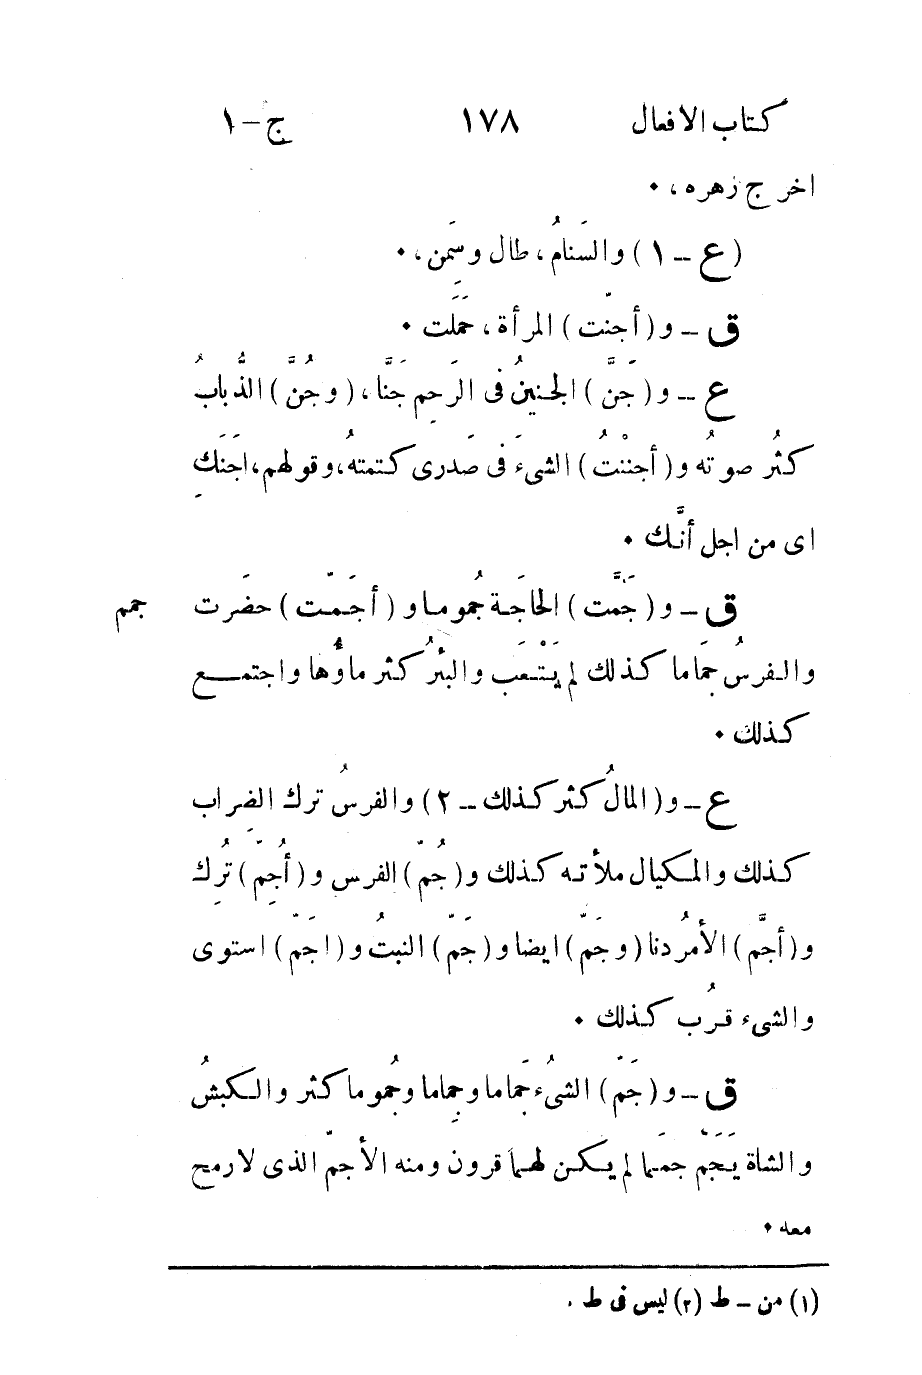 كتاب الافعال ١٧٨ ج-١
اخر ج زهره، ٠
(ع - ١) والسَنامُ، طال وسَمِن، ٠
ق - و(أجنّت) المرأة، حَمَلَت ٠
ع - و(جَنَّ) الجنينُ فى الرَحِم جَنًّا، (وجُنَّ) الذُّبابُ
كثُر صوتُه و(أجننْتُ) الشىءَ فى صَدرى كتمتهُ، وقولهم، اجَنَكِ
اى من اجل أنَّك ٠
ق - و(جَمَّت) الحاجَة جُموما و(أجَمّت) حضَرت جمم
والفرسُ جَماما كذلك لم يَتْعَب والبئرُ كثر ماؤُها واجتمع
كذلك ٠
ع - و(المالُ كثر كذلك - ٢) والفرسُ ترك الضِراب
كذلك والمكيال ملأته كذلك و(جُمّ) الفرس و(أُجِمّ) تُرِك
و(أجَّم) الأمرُ دنا (وجَمّ) ايضا و(جَمّ) النبتُ و(اجَمّ) استوى
والشىء قرُب كذلك ٠
ق - و(جَمّ) الشىُء جَماما وجِماما وجُموما كثر والكبشُ
والشاة يَجَمّ جمَما لم يكن لهما قرون ومنه الأجمّ الذى لا رمح
معه ٠
(١) من - ط (٢) ليس فى ط .